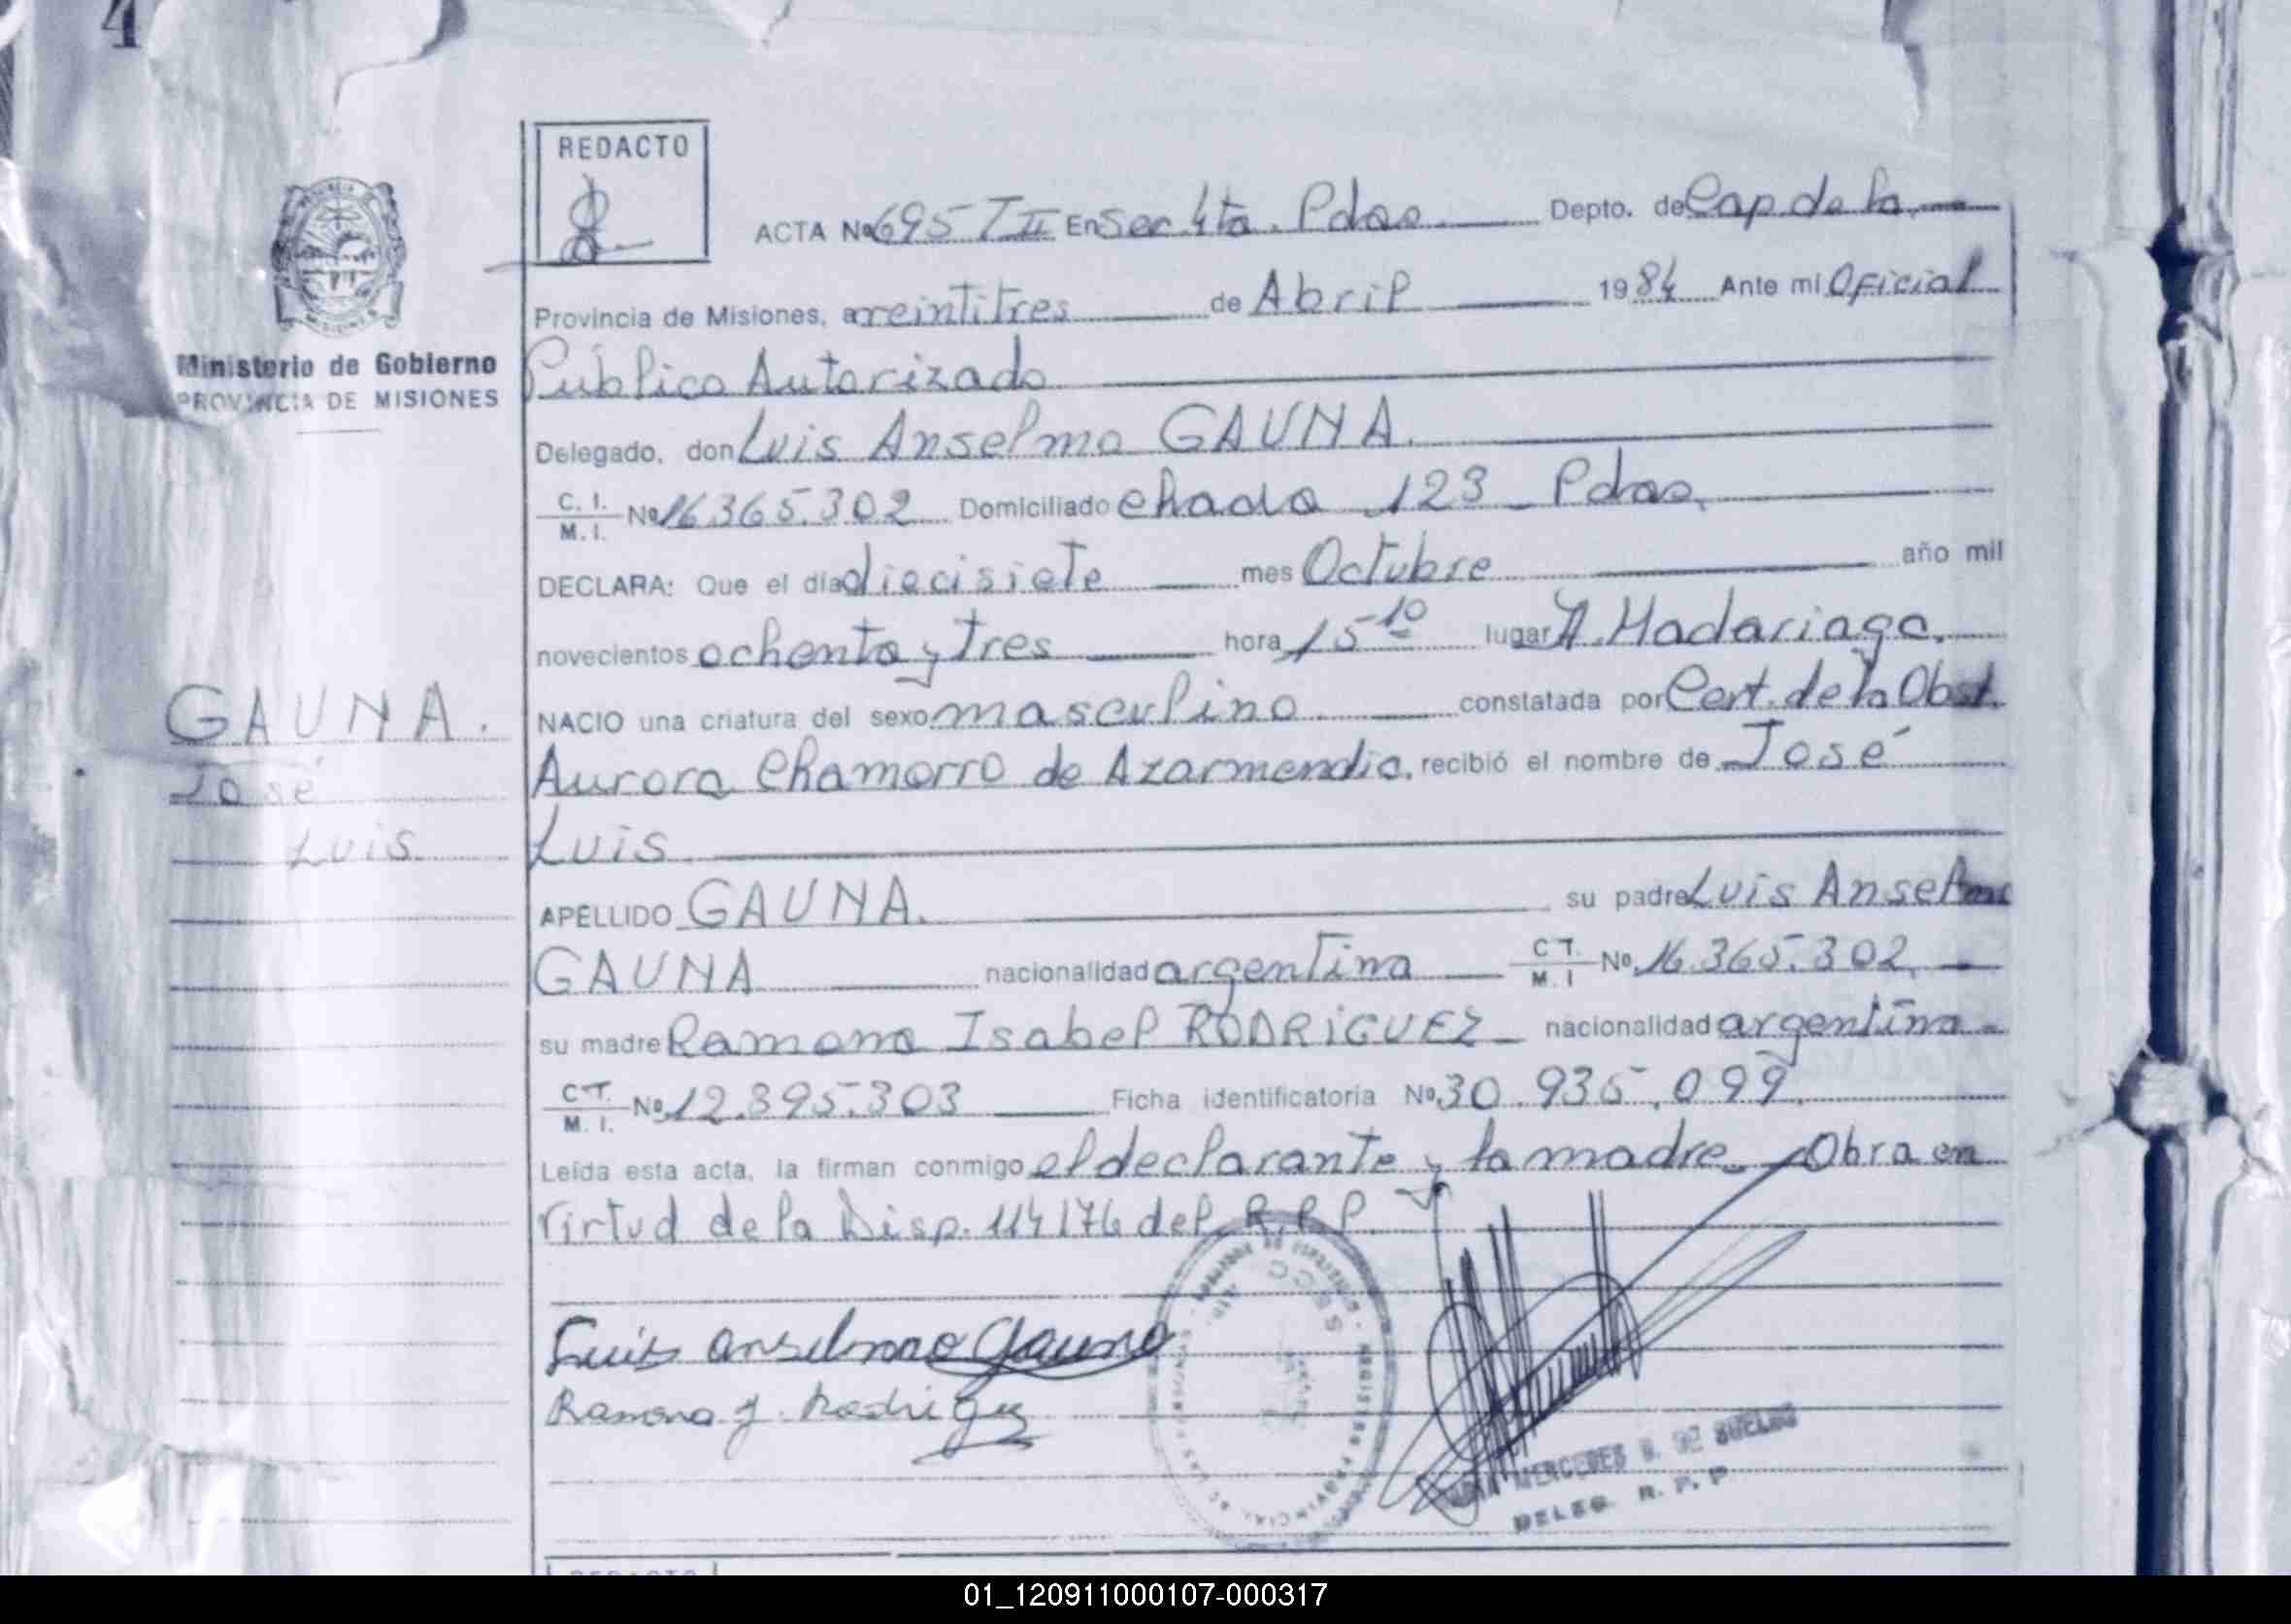 4
REDACTO
ACTA No 695 T II En Sec. 4ta. Pdas. Depto. de Cap. de la
Provincia de Misiones, a veintitres de Abril 1984 Ante mi Oficial
Público Autorizado
Ministerio de Gobierno
PROVINCIA DE MISIONES
Delegado, don Luis Anselmo GAUNA.
C. I. / M. I. No 16.365.302 Domiciliado Chada 123 - Pdas.
DECLARA: Que el día diecisiete mes Octubre año mil
novecientos ochenta y tres hora 15 10 lugar H. Madariaga.
NACIO una criatura del sexo masculino constatada por Cert. de la Obst.
Aurora Chamorro de Azarmendia, recibió el nombre de José
Luis
GAUNA.
José
Luis
APELLIDO GAUNA. su padre Luis Anselmo
GAUNA nacionalidad argentina C T. / M. I No 16.365.302.
su madre Ramona Isabel RODRIGUEZ - nacionalidad argentina -
C T. / M. I. No 12.895.303 Ficha identificatoria No 30.935.099.
Leída esta acta, la firman conmigo el declarante y la madre - Obra en
virtud de la Disp. 114/76 del R.P.P.
Luis Anselmo Gauna
Ramona I. Rodriguez
REGISTRO PROVINCIAL DE LAS PERSONAS
MERCEDES DE SUELDO
DELEG. R. P. P
REDACTO
01_120911000107-000317